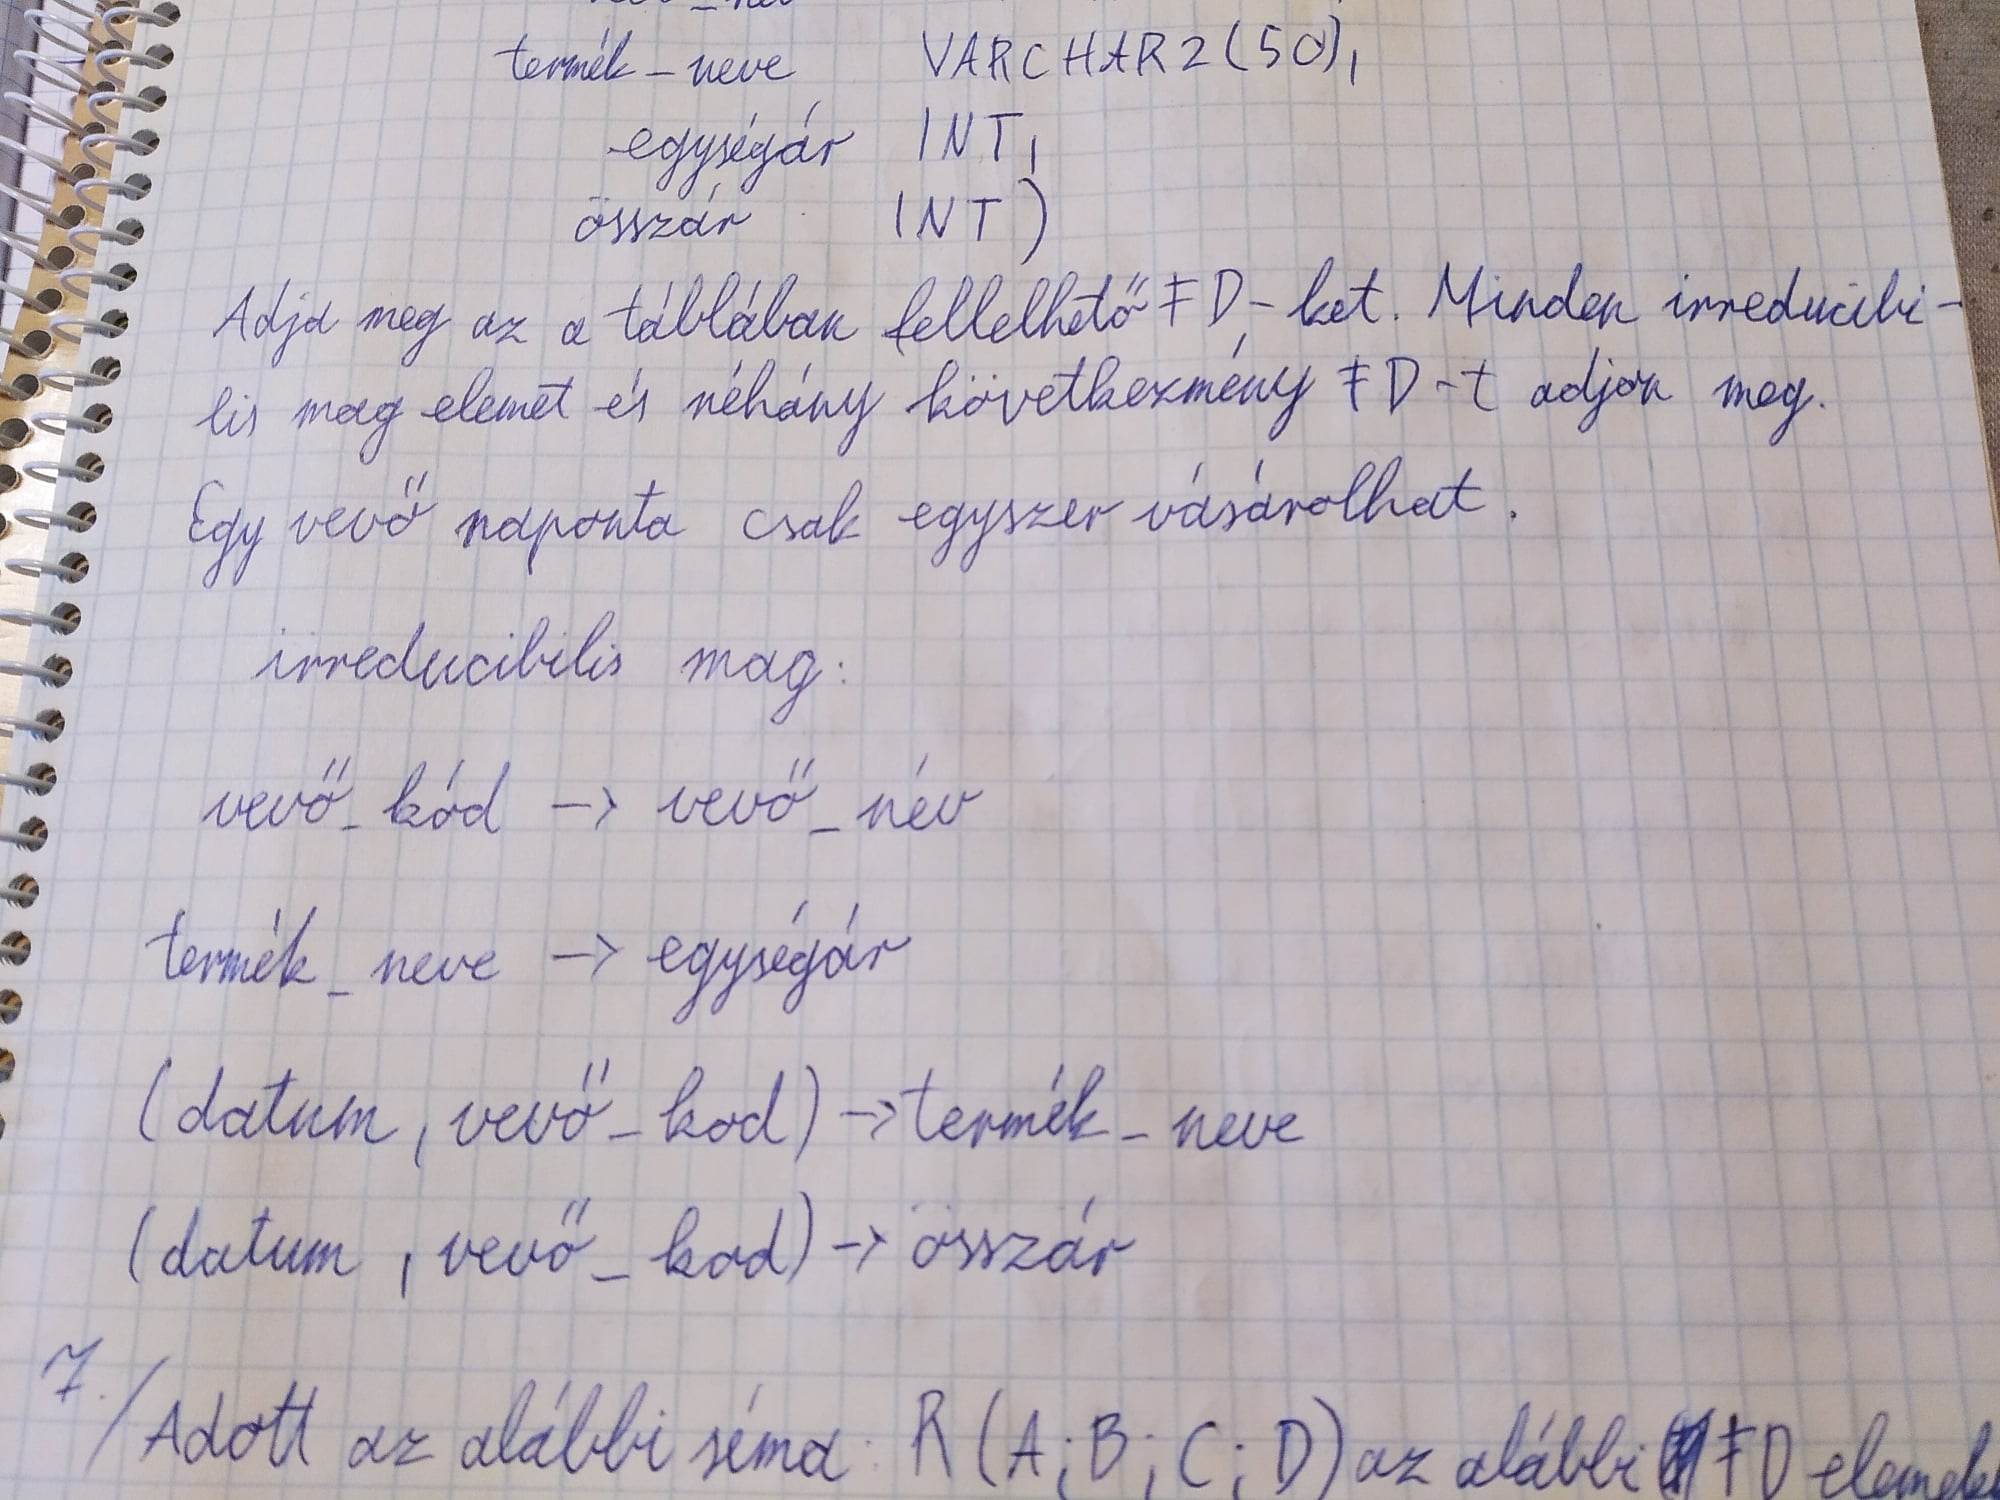 termék_neve VARCHAR2(50),
egységár INT,
összár INT)
Adja meg az a táblában fellelhető FD-ket. Minden irreducibi-
lis mag elemet és néhány következmény FD-t adjon meg.
Egy vevő naponta csak egyszer vásárolhat.
irreducibilis mag:
vevő_kód -> vevő_név
termék_neve -> egységár
(datum, vevő_kod) -> termék_neve
(datum, vevő_kod) -> összár
7./ Adott az alábbi séma: R(A;B;C;D) az alábbi FD